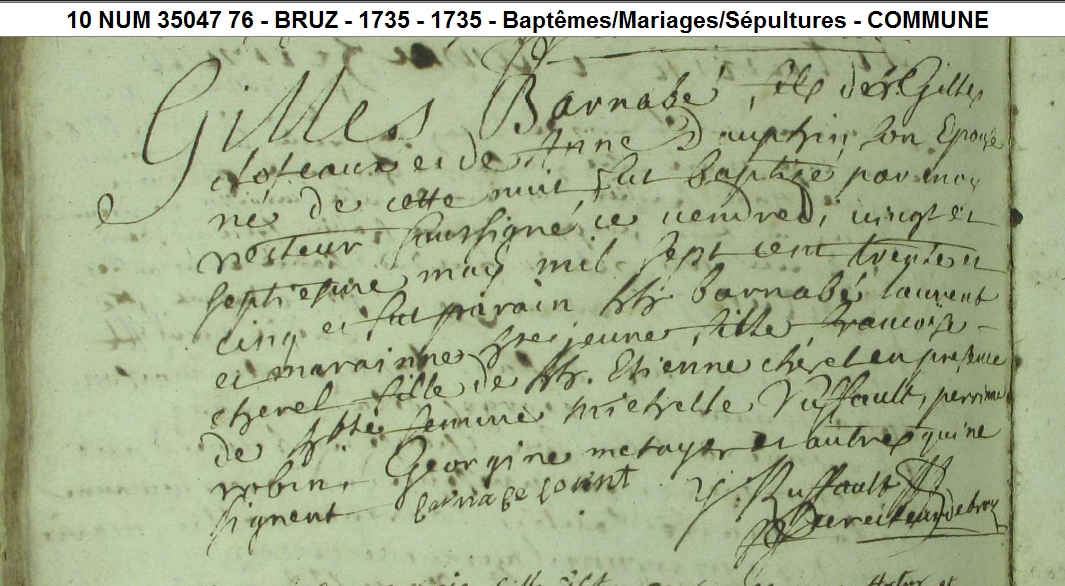 10 NUM 35047 76 - BRUZ - 1735 - 1735 - Baptêmes/Mariages/Sépultures - COMMUNE
Gilles Barnabé, fils de Gilles
et de Anne Dauphin son Epouse
né de cette nuit fut baptisé par moy
recteur soussigné, ce vendredi vingt et
septiesme may mil sept cent trente et
cinq et fut parain barnabé laurent
et marainne jeune fille francoise
cherel fille de Etienne cherel en presence
de femme Michelle Ruffault, perrine
robin, Georgine metayer et autres qui ne
signent
Ruffault